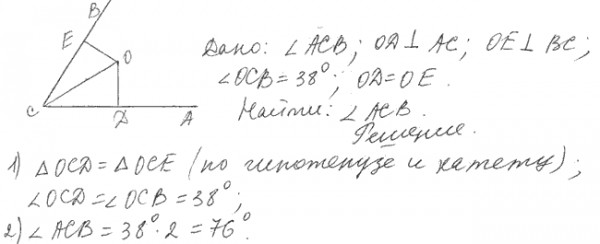 B
E
O
C
D
A
Дано: ∠ACB; OD⊥AC; OE⊥BC;
∠OCB=38°; OD=OE.
Найти: ∠ACB.
Решение.
1) △OCD=△OCE (по гипотенузе и катету);
∠OCD=∠OCB=38°;
2) ∠ACB=38°·2=76°.